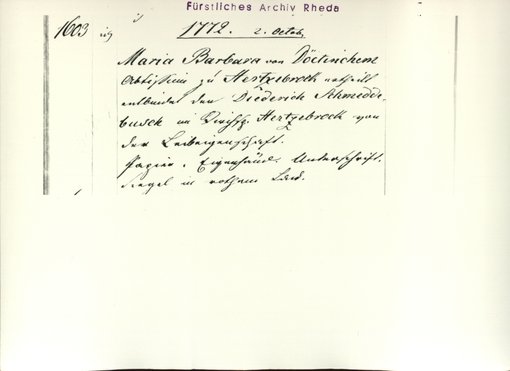 Fürstliches Archiv Rheda
1603 1772. 2. Octob.
Maria Barbara von Döetinchem
Äbtissin zu Hertzebrock
entbindet den Diederich Schmedde-
busch im Hertzebrock von
der Leibeigenschaft.
Papier. Eigenhänd. Unterschrift.
Siegel in rothem Lack.